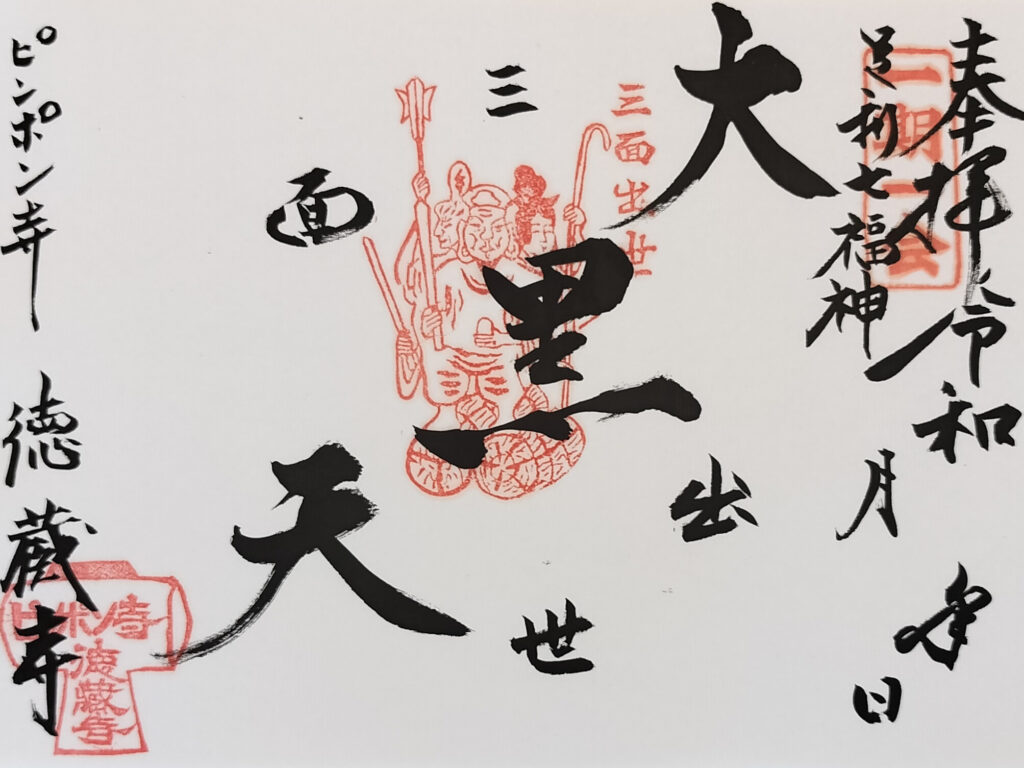 奉拝 令和 年
足利七福神 月 日
一期一会
大黒天
三面出世
三面出世
ピンポン寺 徳蔵寺
徳蔵寺